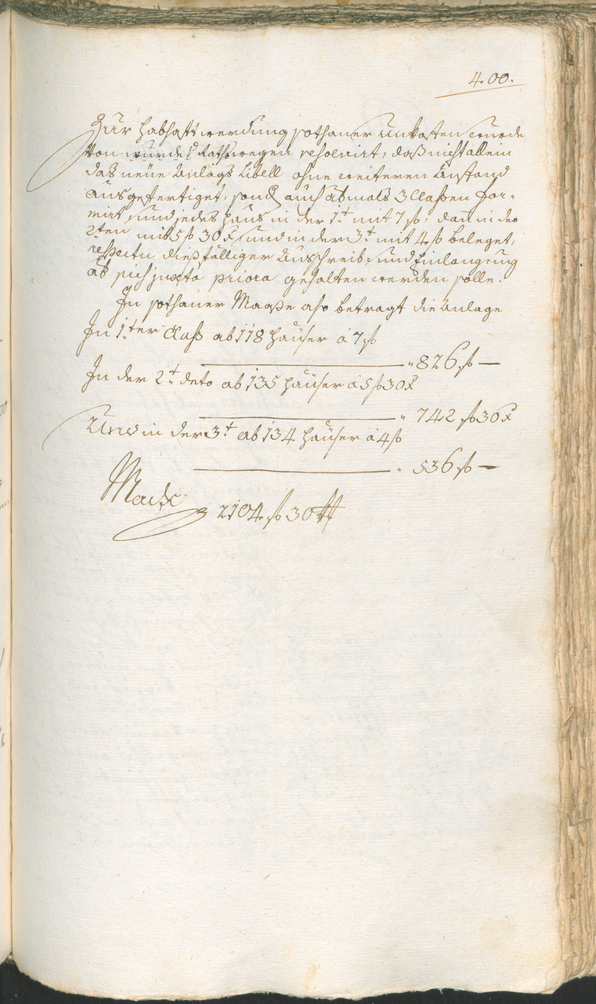 400.
Zur habhafft werdung sothaner Unkosten wurde
von wurde Raths wegen resolvirt, daß nicht allein
das neüe Anlags Libell ohne weiteren Anstand
ausgefertiget, sond auch abmals 3 Classen for-
mirt, und jedes haus in der 1t mit 7 f: dan in der
2ten mit 5 f 30 x, und in der 3t mit 4 f beleget,
respectu dießfälliger Ausschreib- und Einlangung
ab sich juxta priora gehalten werden solle.
In sothaner Maaße also betragt die Anlage
In 1ter Class ab 118 häuser a 7 f
826 f —
In der 2t deto ab 135 häuser a 5 f 30 x
742 f 30 x
Und in der 3t ab 134 häuser a 4 f
536 f —
Macht 2104 f 30 x